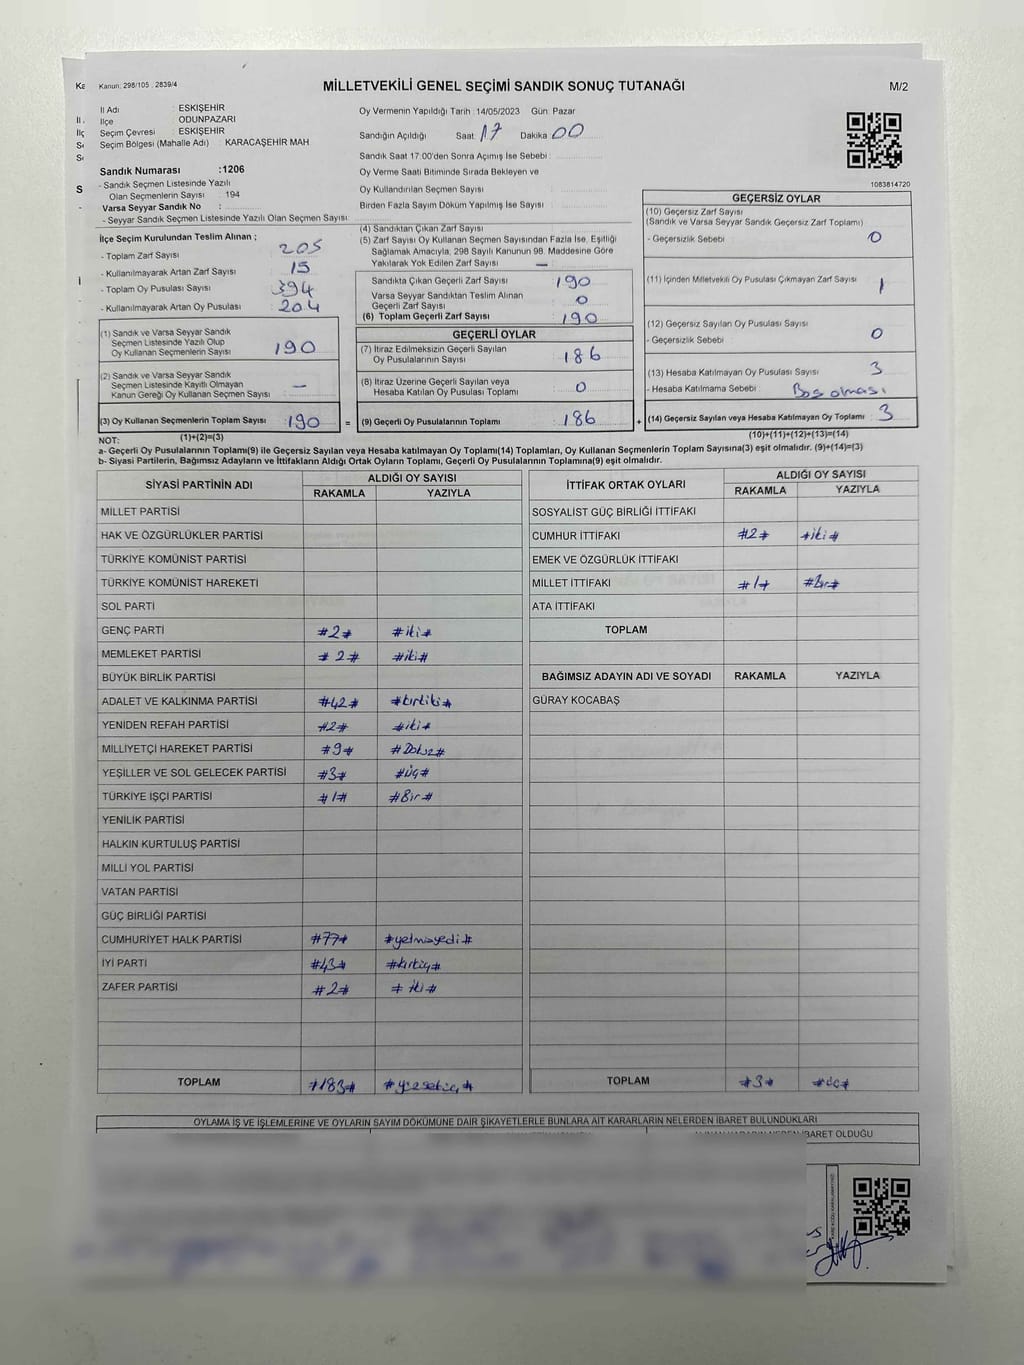 Kanun: 298/105 : 2839/4
MİLLETVEKİLİ GENEL SEÇİMİ SANDIK SONUÇ TUTANAĞI
M/2
İl Adı : ESKİŞEHİR
İlçe : ODUNPAZARI
Seçim Çevresi : ESKİŞEHİR
Seçim Bölgesi (Mahalle Adı) : KARACAŞEHİR MAH
Sandık Numarası :1206
- Sandık Seçmen Listesinde Yazılı
Olan Seçmenlerin Sayısı : 194
Varsa Seyyar Sandık No :
- Seyyar Sandık Seçmen Listesinde Yazılı Olan Seçmen Sayısı:
Oy Vermenin Yapıldığı Tarih : 14/05/2023 Gün: Pazar
Sandığın Açıldığı Saat 17 Dakika 00
Sandık Saat 17:00'den Sonra Açımış İse Sebebi :
Oy Verme Saati Bitiminde Sırada Bekleyen ve
Oy Kullandırılan Seçmen Sayısı :
Birden Fazla Sayım Döküm Yapılmış İse Sayısı :
1083814720
İlçe Seçim Kurulundan Teslim Alınan ;
- Toplam Zarf Sayısı : 205
- Kullanılmayarak Artan Zarf Sayısı : 15
- Toplam Oy Pusulası Sayısı : 394
- Kullanılmayarak Artan Oy Pusulası : 204
(1) Sandık ve Varsa Seyyar Sandık
Seçmen Listesinde Yazılı Olup
Oy Kullanan Seçmenlerin Sayısı : 190
(2) Sandık ve Varsa Seyyar Sandık
Seçmen Listesinde Kayıtlı Olmayan
Kanun Gereği Oy Kullanan Seçmen Sayısı : —
(3) Oy Kullanan Seçmenlerin Toplam Sayısı : 190
(1)+(2)=(3)
(4) Sandıktan Çıkan Zarf Sayısı
(5) Zarf Sayısı Oy Kullanan Seçmen Sayısından Fazla İse, Eşitliği
Sağlamak Amacıyla, 298 Sayılı Kanunun 98. Maddesine Göre
Yakılarak Yok Edilen Zarf Sayısı : —
Sandıkta Çıkan Geçerli Zarf Sayısı : 190
Varsa Seyyar Sandıktan Teslim Alınan
Geçerli Zarf Sayısı : 0
(6) Toplam Geçerli Zarf Sayısı : 190
GEÇERLİ OYLAR
(7) İtiraz Edilmeksizin Geçerli Sayılan
Oy Pusulalarının Sayısı : 186
(8) İtiraz Üzerine Geçerli Sayılan veya
Hesaba Katılan Oy Pusulası Toplamı : 0
= (9) Geçerli Oy Pusulalarının Toplamı : 186
GEÇERSİZ OYLAR
(10) Geçersiz Zarf Sayısı
(Sandık ve Varsa Seyyar Sandık Geçersiz Zarf Toplamı)
- Geçersizlik Sebebi : 0
(11) İçinden Milletvekili Oy Pusulası Çıkmayan Zarf Sayısı : 1
(12) Geçersiz Sayılan Oy Pusulası Sayısı : 0
- Geçersizlik Sebebi :
(13) Hesaba Katılmayan Oy Pusulası Sayısı : 3
- Hesaba Katılmama Sebebi : Boş olması
+ (14) Geçersiz Sayılan veya Hesaba Katılmayan Oy Toplamı : 3
(10)+(11)+(12)+(13)=(14)
NOT:
a- Geçerli Oy Pusulalarının Toplamı(9) ile Geçersiz Sayılan veya Hesaba katılmayan Oy Toplamı(14) Toplamları, Oy Kullanan Seçmenlerin Toplam Sayısına(3) eşit olmalıdır. (9)+(14)=(3)
b- Siyasi Partilerin, Bağımsız Adayların ve İttifakların Aldığı Ortak Oyların Toplamı, Geçerli Oy Pusulalarının Toplamına(9) eşit olmalıdır.
SİYASİ PARTİNİN ADI ALDIĞI OY SAYISI
RAKAMLA YAZIYLA
MİLLET PARTİSİ
HAK VE ÖZGÜRLÜKLER PARTİSİ
TÜRKİYE KOMÜNİST PARTİSİ
TÜRKİYE KOMÜNİST HAREKETİ
SOL PARTİ
GENÇ PARTİ #2# #iki#
MEMLEKET PARTİSİ #2# #iki#
BÜYÜK BİRLİK PARTİSİ
ADALET VE KALKINMA PARTİSİ #42# #kırkiki#
YENİDEN REFAH PARTİSİ #2# #iki#
MİLLİYETÇİ HAREKET PARTİSİ #9# #Dokuz#
YEŞİLLER VE SOL GELECEK PARTİSİ #3# #üç#
TÜRKİYE İŞÇİ PARTİSİ #1# #Bir#
YENİLİK PARTİSİ
HALKIN KURTULUŞ PARTİSİ
MİLLİ YOL PARTİSİ
VATAN PARTİSİ
GÜÇ BİRLİĞİ PARTİSİ
CUMHURİYET HALK PARTİSİ #77# #yetmişyedi#
İYİ PARTİ #43# #kırküç#
ZAFER PARTİSİ #2# #iki#
TOPLAM #183# #yüzseksenüç#
İTTİFAK ORTAK OYLARI ALDIĞI OY SAYISI
RAKAMLA YAZIYLA
SOSYALİST GÜÇ BİRLİĞİ İTTİFAKI
CUMHUR İTTİFAKI #2# #iki#
EMEK VE ÖZGÜRLÜK İTTİFAKI
MİLLET İTTİFAKI #1# #Bir#
ATA İTTİFAKI
TOPLAM
BAĞIMSIZ ADAYIN ADI VE SOYADI RAKAMLA YAZIYLA
GÜRAY KOCABAŞ
TOPLAM #3# #üç#
OYLAMA İŞ VE İŞLEMLERİNE VE OYLARIN SAYIM DÖKÜMÜNE DAİR ŞİKAYETLERLE BUNLARA AİT KARARLARIN NELERDEN İBARET BULUNDUKLARI
İBARET OLDUĞU